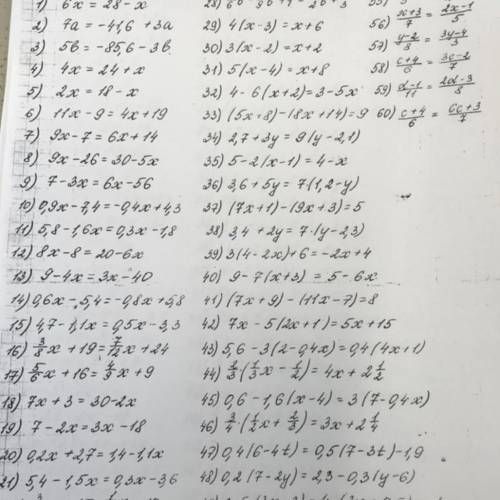 1) 6x = 28 - x
2) 7a = -41,6 + 3a
3) 5b = -85,6 - 3b
4) 4x = 24 + x
5) 2x = 18 - x
6) 11x - 9 = 4x + 19
7) 9x - 7 = 6x + 14
8) 9x - 26 = 30 - 5x
9) 7 - 3x = 6x - 56
10) 0,9x - 7,4 = -0,4x + 4,3
11) 5,8 - 1,6x = 0,3x - 1,8
12) 8x - 8 = 20 - 6x
13) 9 - 4x = 3x - 40
14) 0,6x - 5,4 = -0,8x + 5,8
15) 4,7 - 1,1x = 0,5x - 3,3
16) 3/8 x + 19 = 7/12 x + 24
17) 5/6 x + 16 = 4/9 x + 9
18) 7x + 3 = 30 - 2x
19) 7 - 2x = 3x - 18
20) 0,2x + 2,7 = 1,4 - 1,1x
21) 5,4 - 1,5x = 0,3x - 3,6
28)
29) 4(x - 3) = x + 6
30) 3(x - 2) = x + 2
31) 5(x - 4) = x + 8
32) 4 - 6(x + 2) = 3 - 5x
33) (5x + 8) - (8x + 14) = 9
34) 2,7 + 3y = 9(y - 2,1)
35) 5 - 2(x - 1) = 4 - x
36) 3,6 + 5y = 7(1,2 - y)
37) (7x + 1) - (9x + 3) = 5
38) 3,4 + 2y = 7(y - 2,3)
39) 3(4 - 2x) + 6 = -2x + 4
40) 9 - 7(x + 3) = 5 - 6x
41) (7x + 9) - (11x - 7) = 8
42) 7x - 5(2x + 1) = 5x + 15
43) 5,6 - 3(2 - 0,4x) = 0,4(4x + 1)
44) 2/3 (1/3 x - 1/2) = 4x + 2 1/2
45) 0,6 - 1,6(x - 4) = 3(7 - 0,4x)
46) 3/4 (1/2 x + 2/3) = 3x + 2 1/4
47) 0,4(6 - 4t) = 0,5(7 - 3t) - 1,9
48) 0,2(7 - 2y) = 2,3 - 0,3(y - 6)
55)
56) x+3/7 = 2x-1/5
57) y-2/8 = 3y-4/3
58) c+4/6 = 3c-2/7
59) d-1/11 = 2d-3/8
60) c+4/6 = 6c+3/7